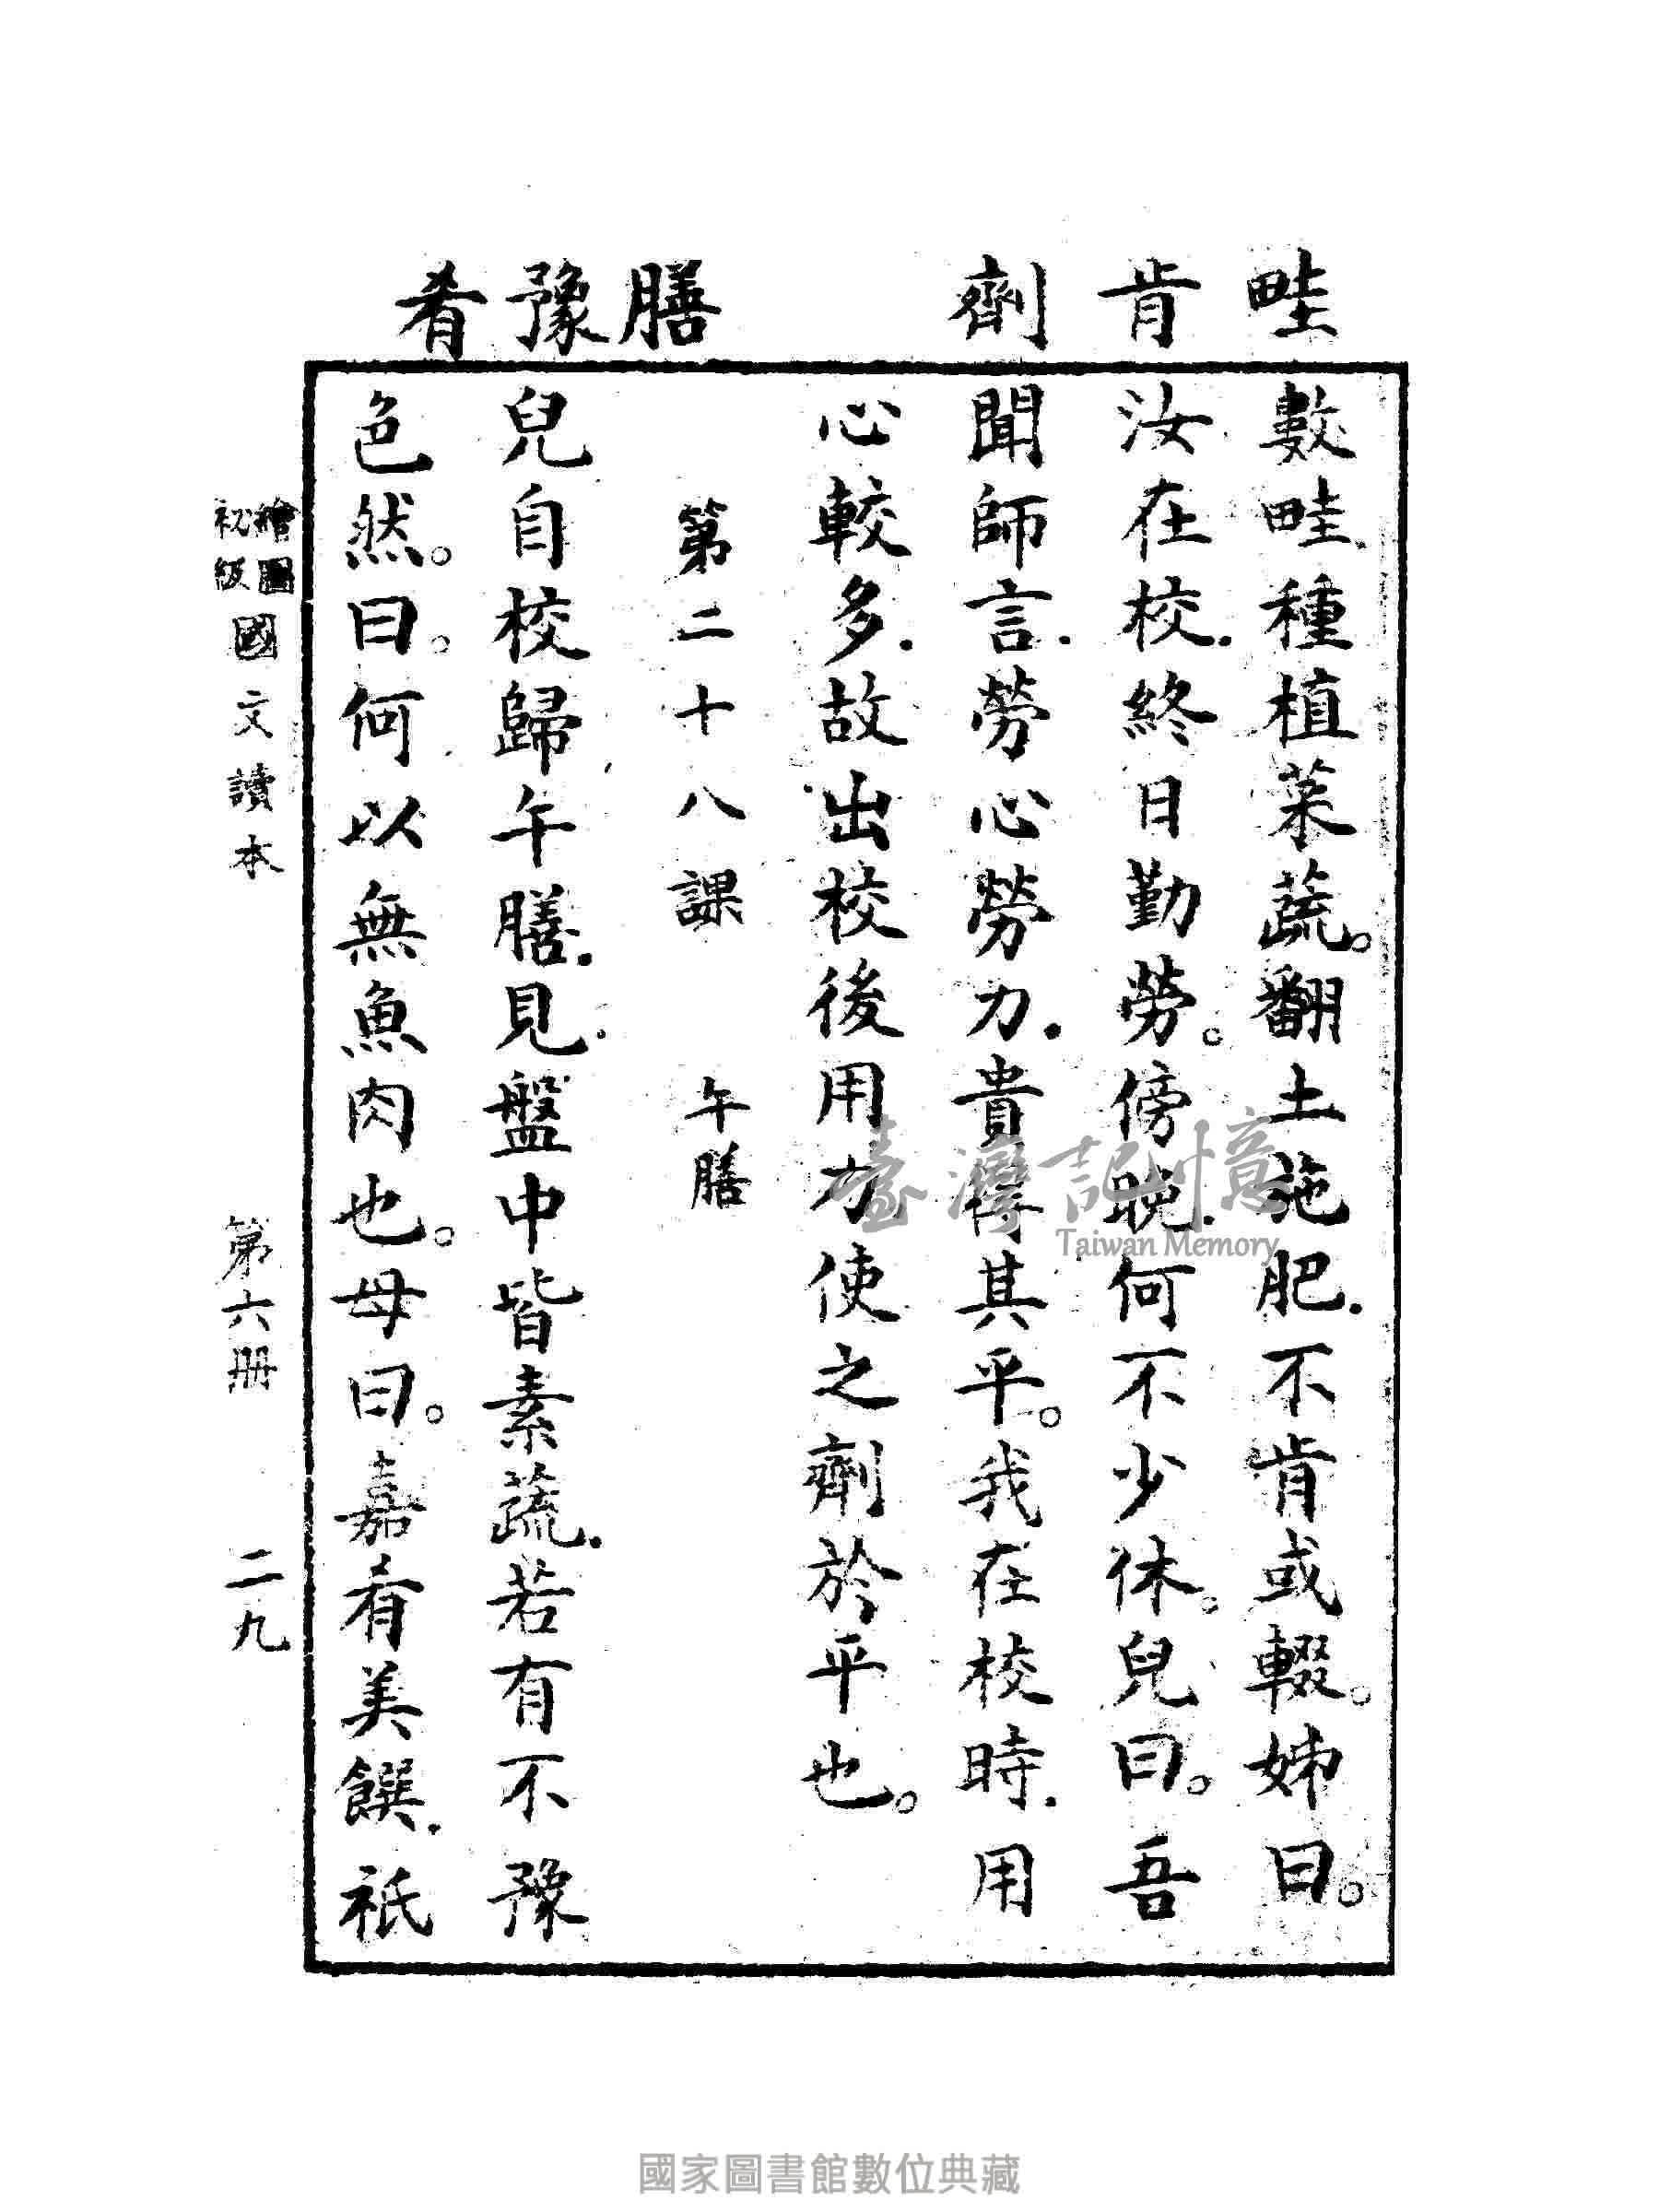 畦 肯 劑 膳 豫 肴
數畦.種植菜蔬。翻土施肥.不肯或輟。姊曰。
汝在校.終日勤勞。傍晚.何不少休。兒曰。吾
聞師言.勞心勞力.貴得其平。我在校時.用
心較多.故出校後用力.使之劑於平也。
第二十八課 午膳
兒自校歸午膳.見盤中皆素蔬.若有不豫
色然。曰。何以無魚肉也。母曰。嘉肴美饌.祇
繪圖初級國文讀本 第六册 二九
臺灣記憶
Taiwan Memory
國家圖書館數位典藏